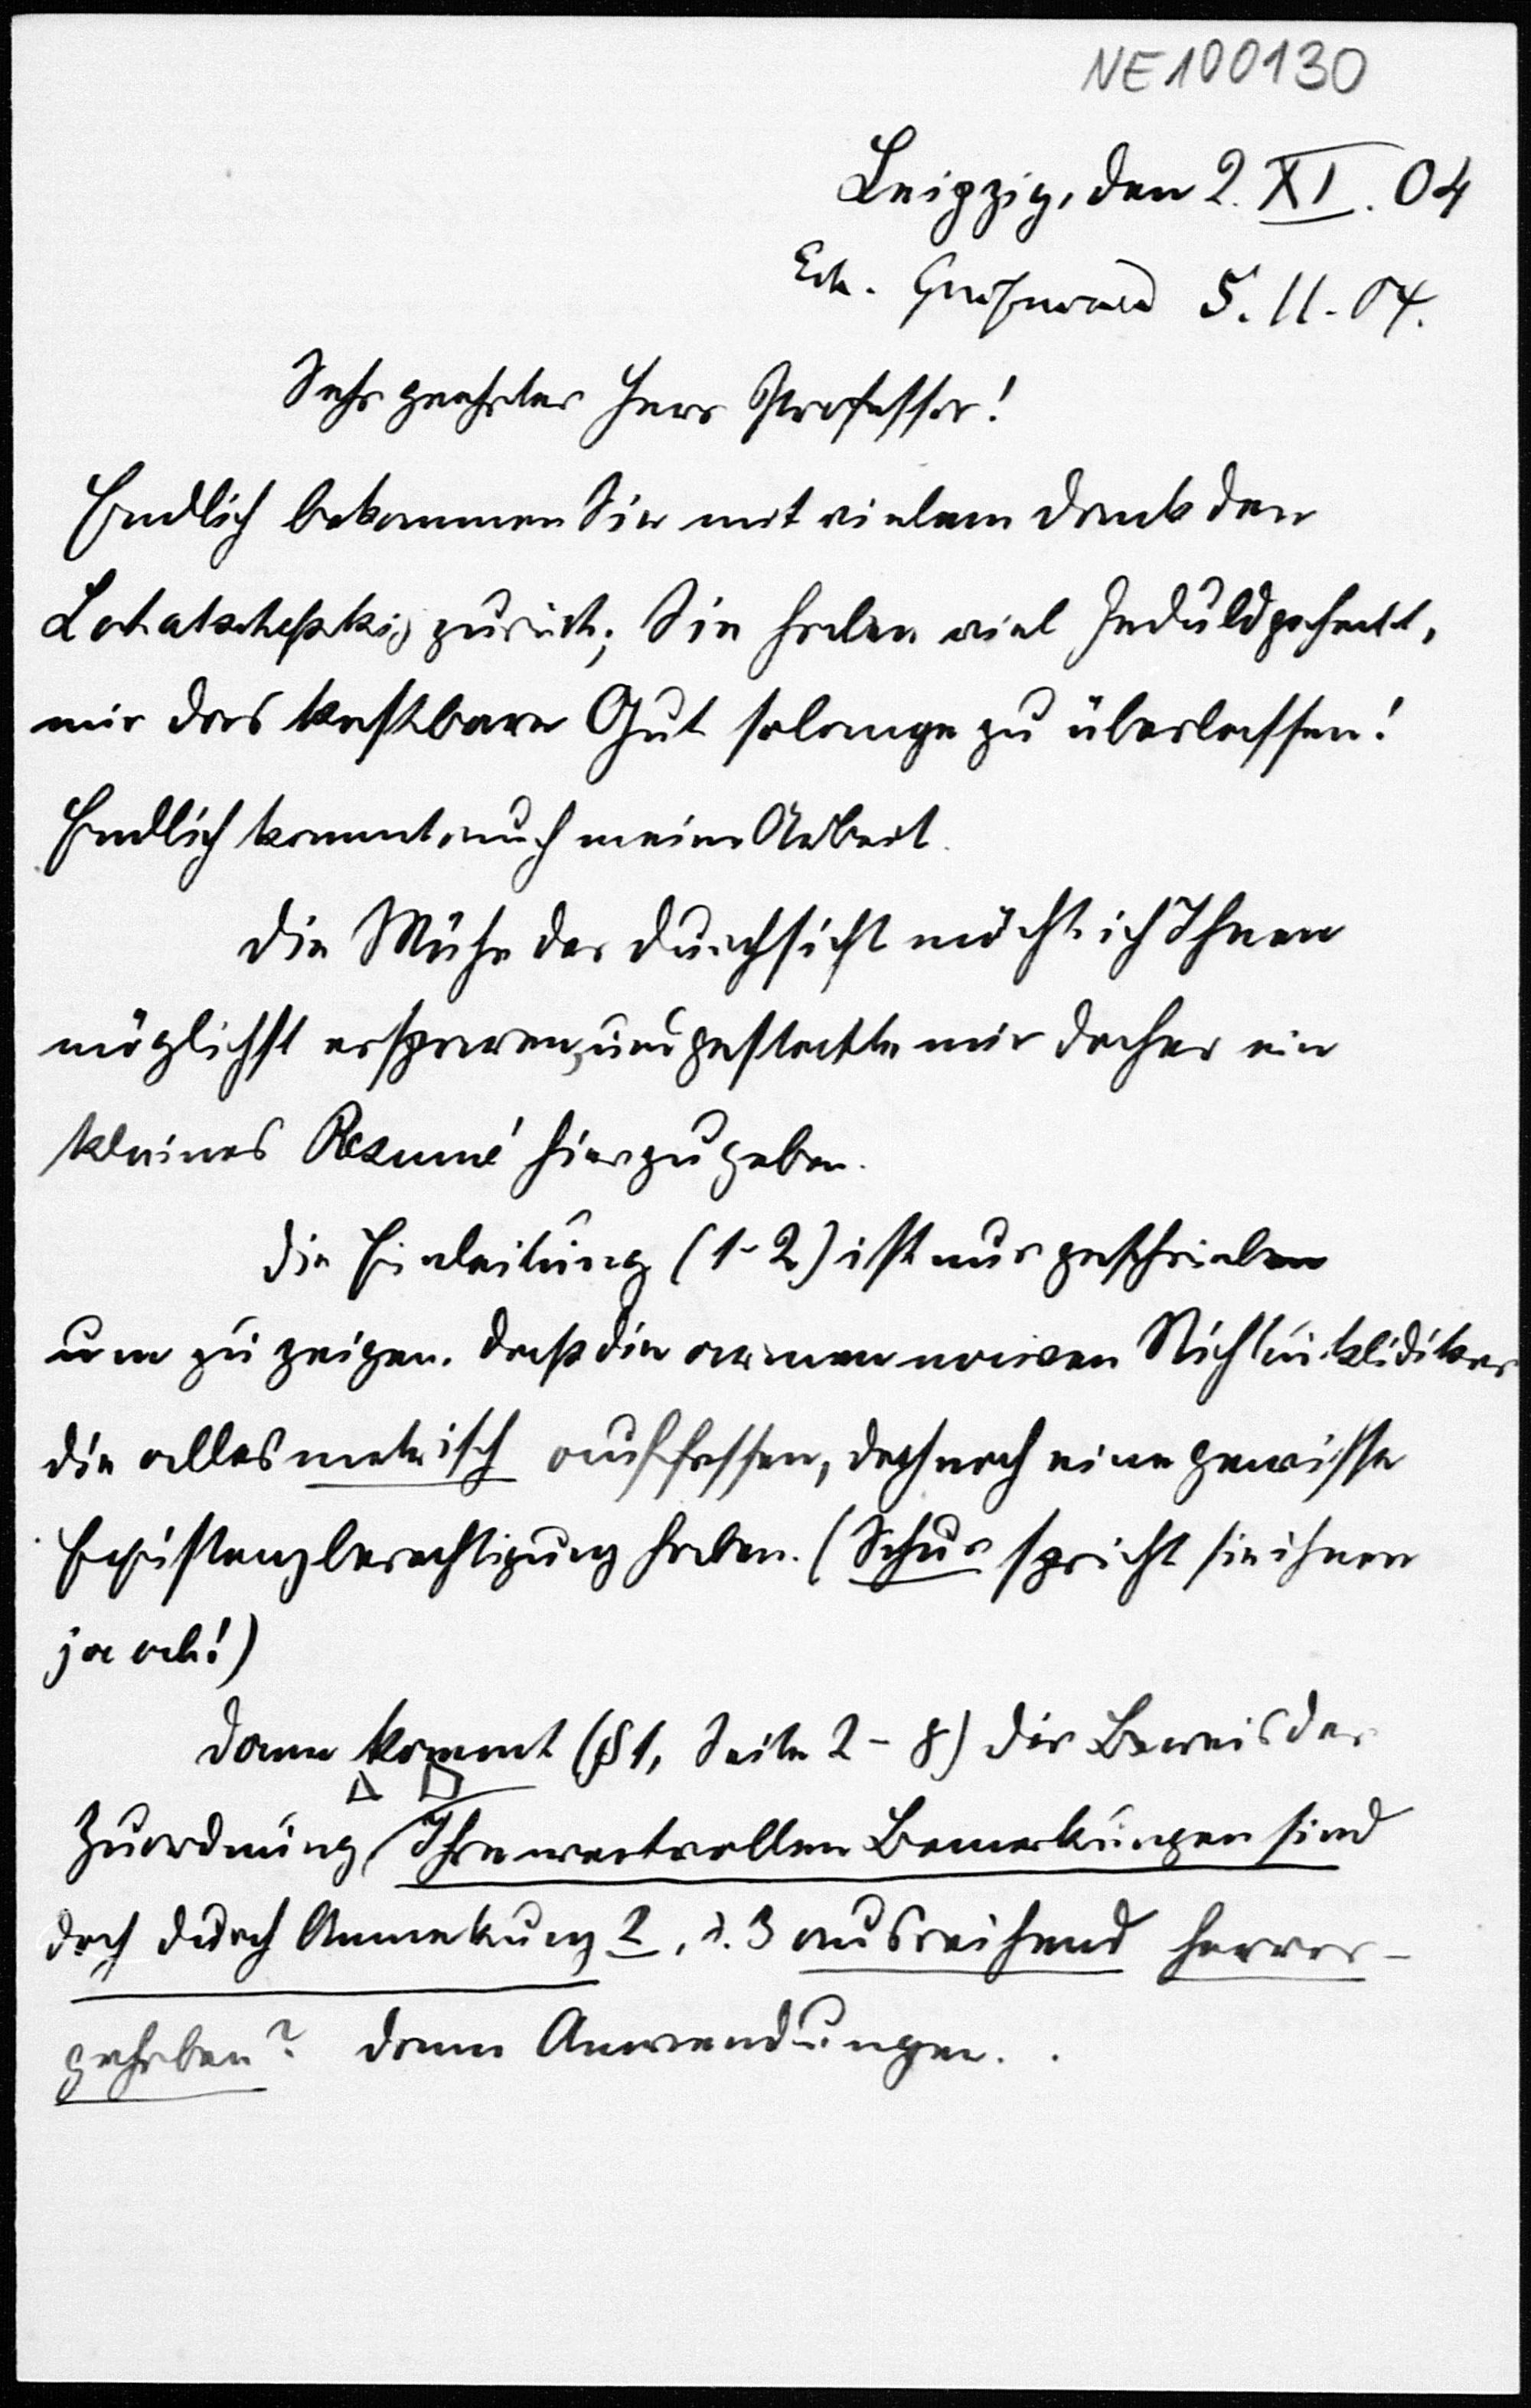 NE100130
Leipzig, den 2. XI. 04
Greifswald 5.11.04.
Sehr geehrter Herr Professor!
Endlich bekommen Sie mit vielem Dank den
Lobatschefskij zurück; Sie haben viel Geduld gehabt,
mir das kostbare Gut solange zu überlassen!
Endlich kommt auch meine Arbeit.
Die Mühe der Durchsicht möcht ich Ihnen
möglichst ersparen, und gestatte mir daher ein
kleines Resumé hierzugeben.
Die Einleitung (1-2) ist nur geschrieben
um zu zeigen. daß die armen naiven Nichteuklidiker
die alles metrisch auffassen, doch noch eine gewisse
Existenzberechtigung haben. (Schur spricht sie ihnen
ja ab!)
Dann kommt (§1, Seite 2-8) der Beweis der
Zuordnung, Ihre wertvollen Bemerkungen sind
doch durch Anmerkung 2, u. 3 ausreichend hervor-
gehoben? Dann Anwendungen.